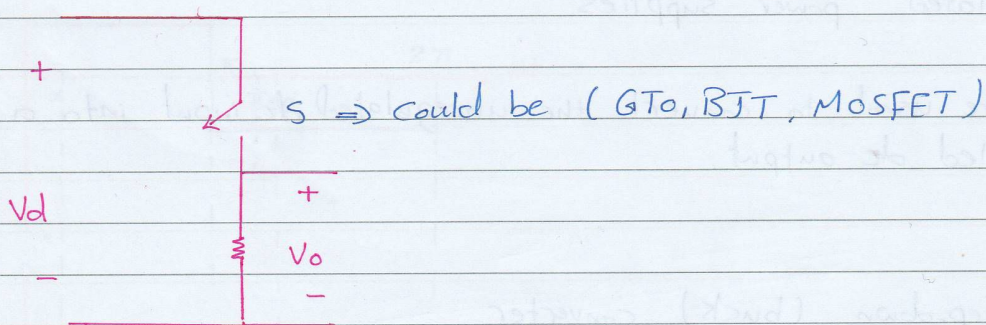 +
S ⇒ Could be (GTO, BJT, MOSFET)
+
Vd
Vo
-
-